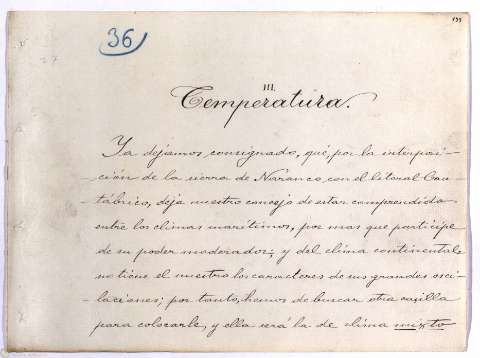 36
III.
Temperatura.
Ya dejamos consignado, que, por la interposi-
ción de la sierra de Naranco con el litoral Can-
tábrico, deja nuestro concejo de estar comprendido
entre los climas marítimos, por mas que participe
de su poder moderador; y del clima continental
no tiene el nuestro los caracteres de sus grandes osci-
laciones; por tanto, hemos de buscar otra casilla
para colocarle, y ella será la de clima mixto